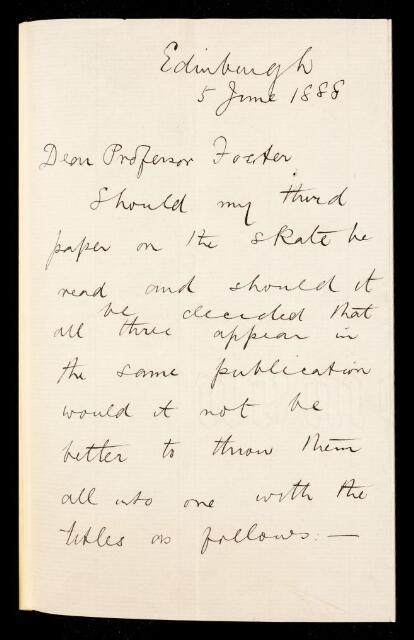 Edinburgh
5 June 1888
Dear Professor Foster
Should my third
paper on the skate be
read and should it
be decided that
all three appear in
the same publication
would it not be
better to throw them
all into one with the
titles as follows:—